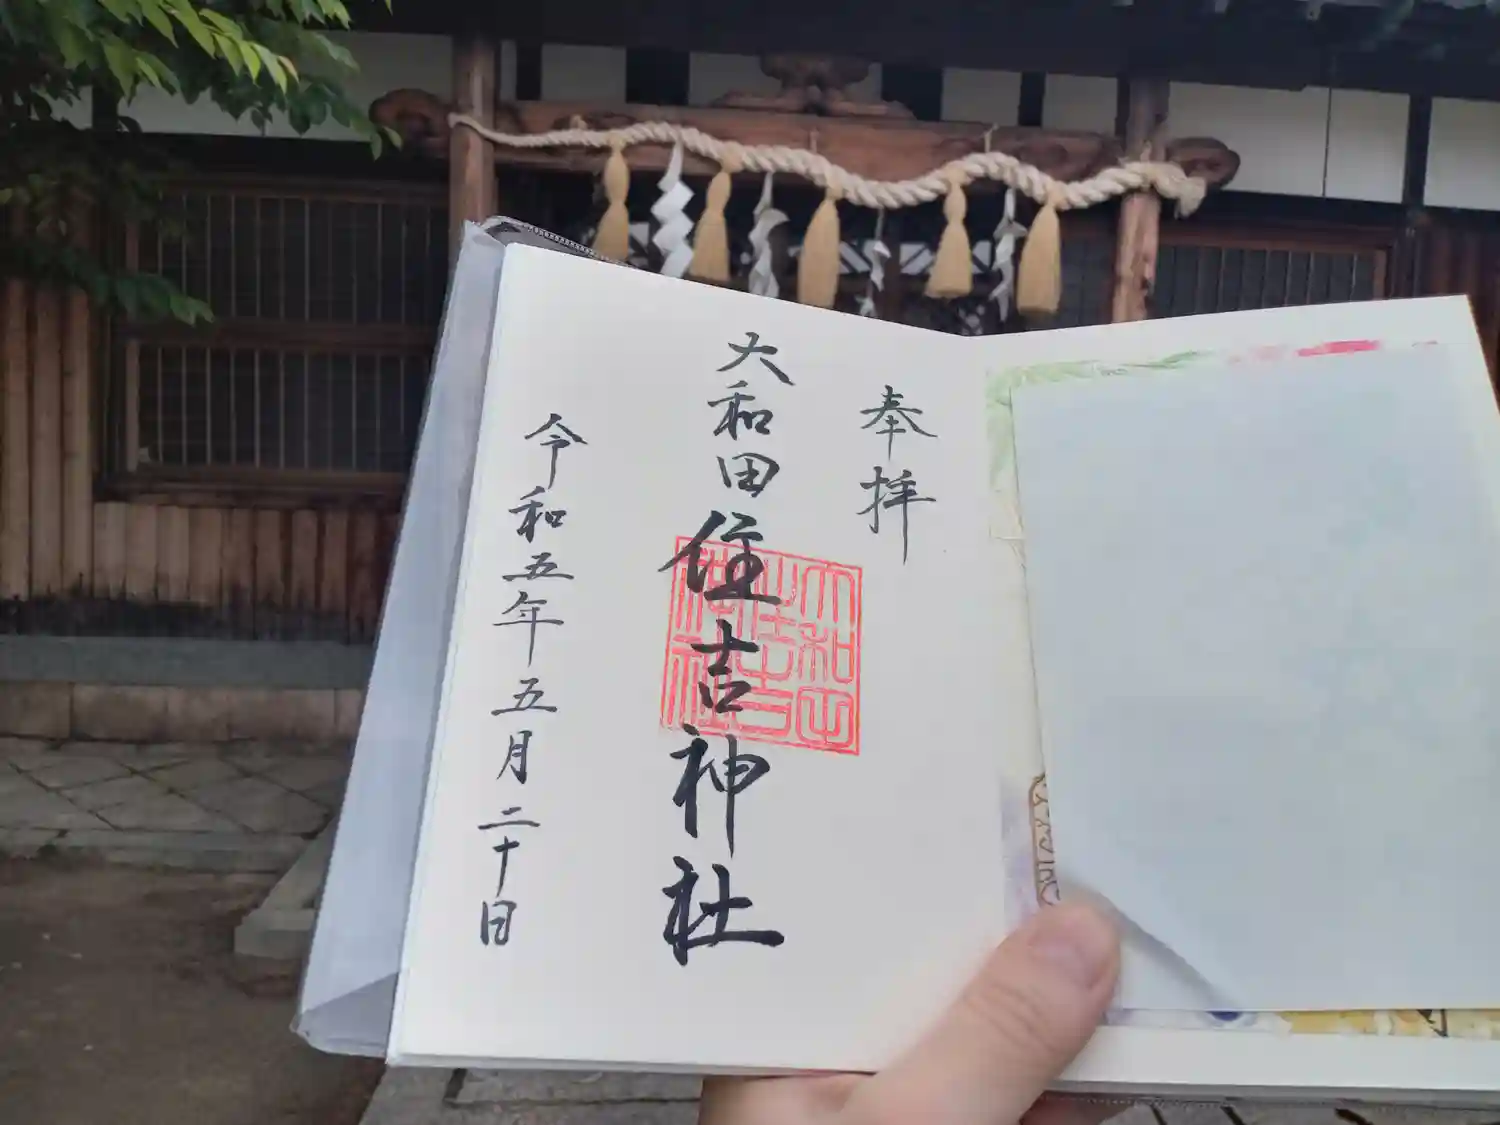 奉拝
大和田住吉神社
大和田住吉神社
令和五年五月二十日